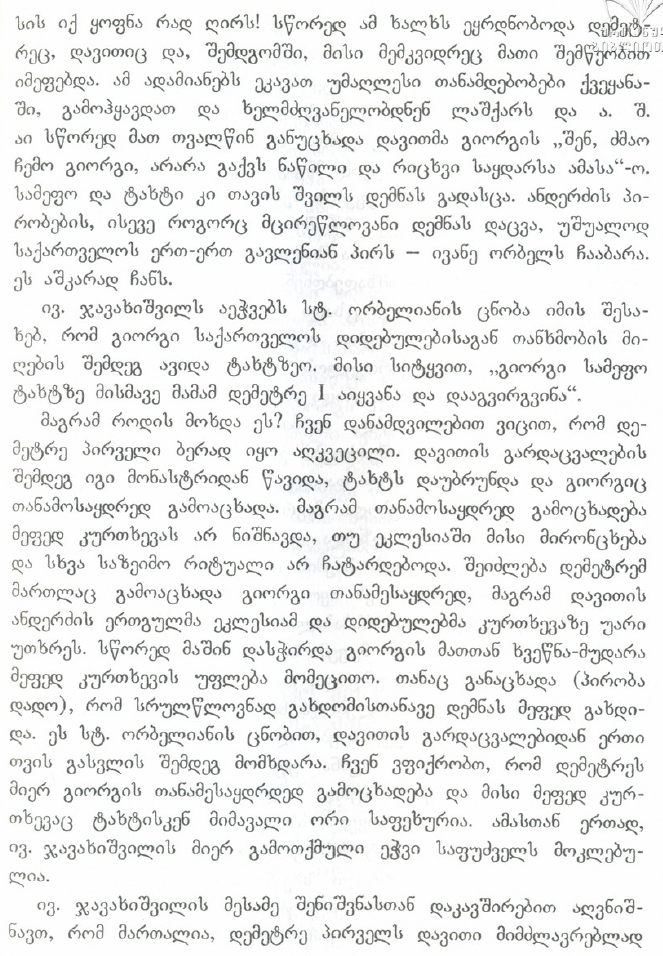 სის იქ ყოფნა რად ღირს! სწორედ ამ ხალხს ეყრდნობოდა დემეტ-
რეც, დავითიც და, შემდგომში, მისი მემკვიდრეც მათი შემწეობით
იმეფებდა. ამ ადამიანებს ეკავათ უმაღლესი თანამდებობები ქვეყანა-
ში, გამოჰყავდათ და ხელმძღვანელობდნენ ლაშქარს და ა. შ.
აი სწორედ მათ თვალწინ განუცხადა დავითმა გიორგის „შენ, ძმაო
ჩემო გიორგი, არარა გაქვს ნაწილი და რიცხვი საყდარსა ამასა“-ო.
სამეფო და ტახტი კი თავის შვილს დემნას გადასცა. ანდერძის პი-
რობების, ისევე როგორც მცირეწლოვანი დემნას დაცვა, უშუალოდ
საქართველოს ერთ-ერთ გავლენიან პირს – ივანე ორბელს ჩააბარა.
ეს აშკარად ჩანს.
ივ. ჯავახიშვილს აეჭვებს სტ. ორბელიანის ცნობა იმის შესა-
ხებ, რომ გიორგი საქართველოს დიდებულებისაგან თანხმობის მი-
ღების შემდეგ ავიდა ტახტზეო. მისი სიტყვით, „გიორგი სამეფო
ტახტზე მისმავე მამამ დემეტრე I აიყვანა და დააგვირგვინა“.
მაგრამ როდის მოხდა ეს? ჩვენ დანამდვილებით ვიცით, რომ დე-
მეტრე პირველი ბერად იყო აღკვეცილი. დავითის გარდაცვალების
შემდეგ იგი მონასტრიდან წავიდა, ტახტს დაუბრუნდა და გიორგიც
თანამოსაყდრედ გამოაცხადა. მაგრამ თანამოსაყდრედ გამოცხადება
მეფედ კურთხევას არ ნიშნავდა, თუ ეკლესიაში მისი მირონცხება
და სხვა საზეიმო რიტუალი არ ჩატარდებოდა. შეიძლება დემეტრემ
მართლაც გამოაცხადა გიორგი თანამესაყდრედ, მაგრამ დავითის
ანდერძის ერთგულმა ეკლესიამ და დიდებულებმა კურთხევაზე უარი
უთხრეს. სწორედ მაშინ დასჭირდა გიორგის მათთან ხვეწნა-მუდარა
მეფედ კურთხევის უფლება მომეცითო. თანაც განაცხადა (პირობა
დადო), რომ სრულწლოვნად გახდომისთანავე დემნას მეფედ გახდი-
და. ეს სტ. ორბელიანის ცნობით, დავითის გარდაცვალებიდან ერთი
თვის გასვლის შემდეგ მომხდარა. ჩვენ ვფიქრობთ, რომ დემეტრეს
მიერ გიორგის თანამესაყდრდედ გამოცხადება და მისი მეფედ კურ-
თხევაც ტახტისკენ მიმავალი ორი საფეხურია. ამასთან ერთად,
ივ. ჯავახიშვილის მიერ გამოთქმული ეჭვი საფუძველს მოკლებუ-
ლია.
ივ. ჯავახიშვილის მესამე შენიშვნასთან დაკავშირებით აღვნიშ-
ნავთ, რომ მართალია, დემეტრე პირველს დავითი მიმძლავრებლად